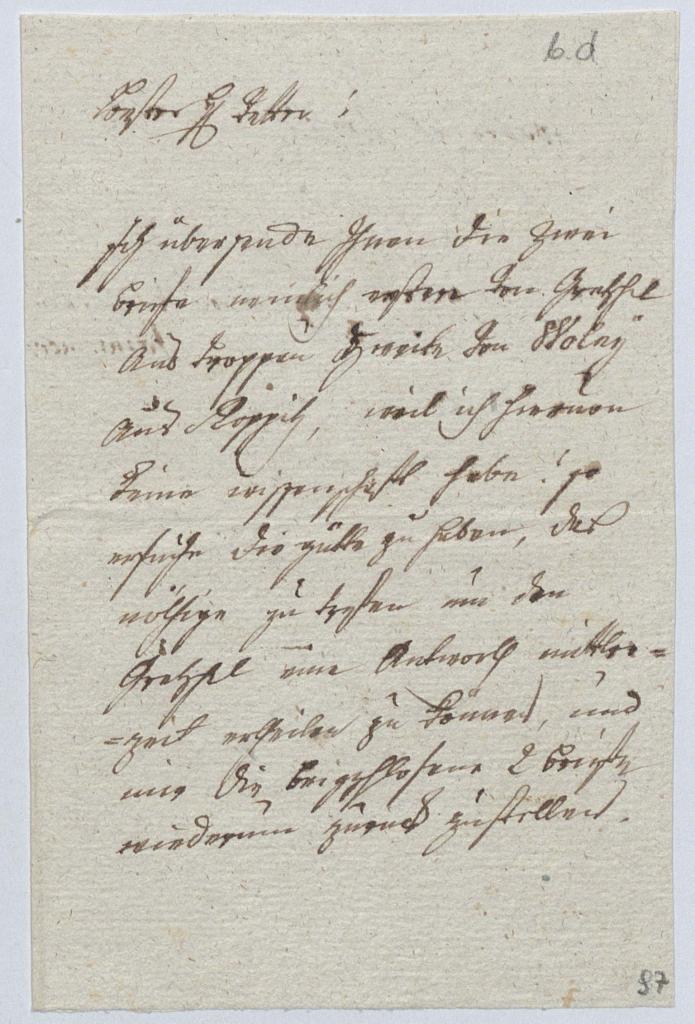 6.d
Bester H Vetter!
Ich übersende Ihnen die zwei
briefe nemlich ersten von Gretzhel
aus Troppau Zweite von Wolny
aus Roppitz, weil ich hirvon
keine wissenschaft habe! so
ersuche die gütte zu haben, das
nöthige zu trefen um den
Gretzhel eine Antworth mittler=
=zeit ertheilen zu können, und
mir die beigeschlosene 2 briefe
wiederum zurück zustellen.
97